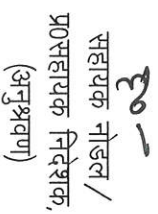 सहायक नोडल /
प्र०सहायक निदेशक,
(अनुश्रवण)